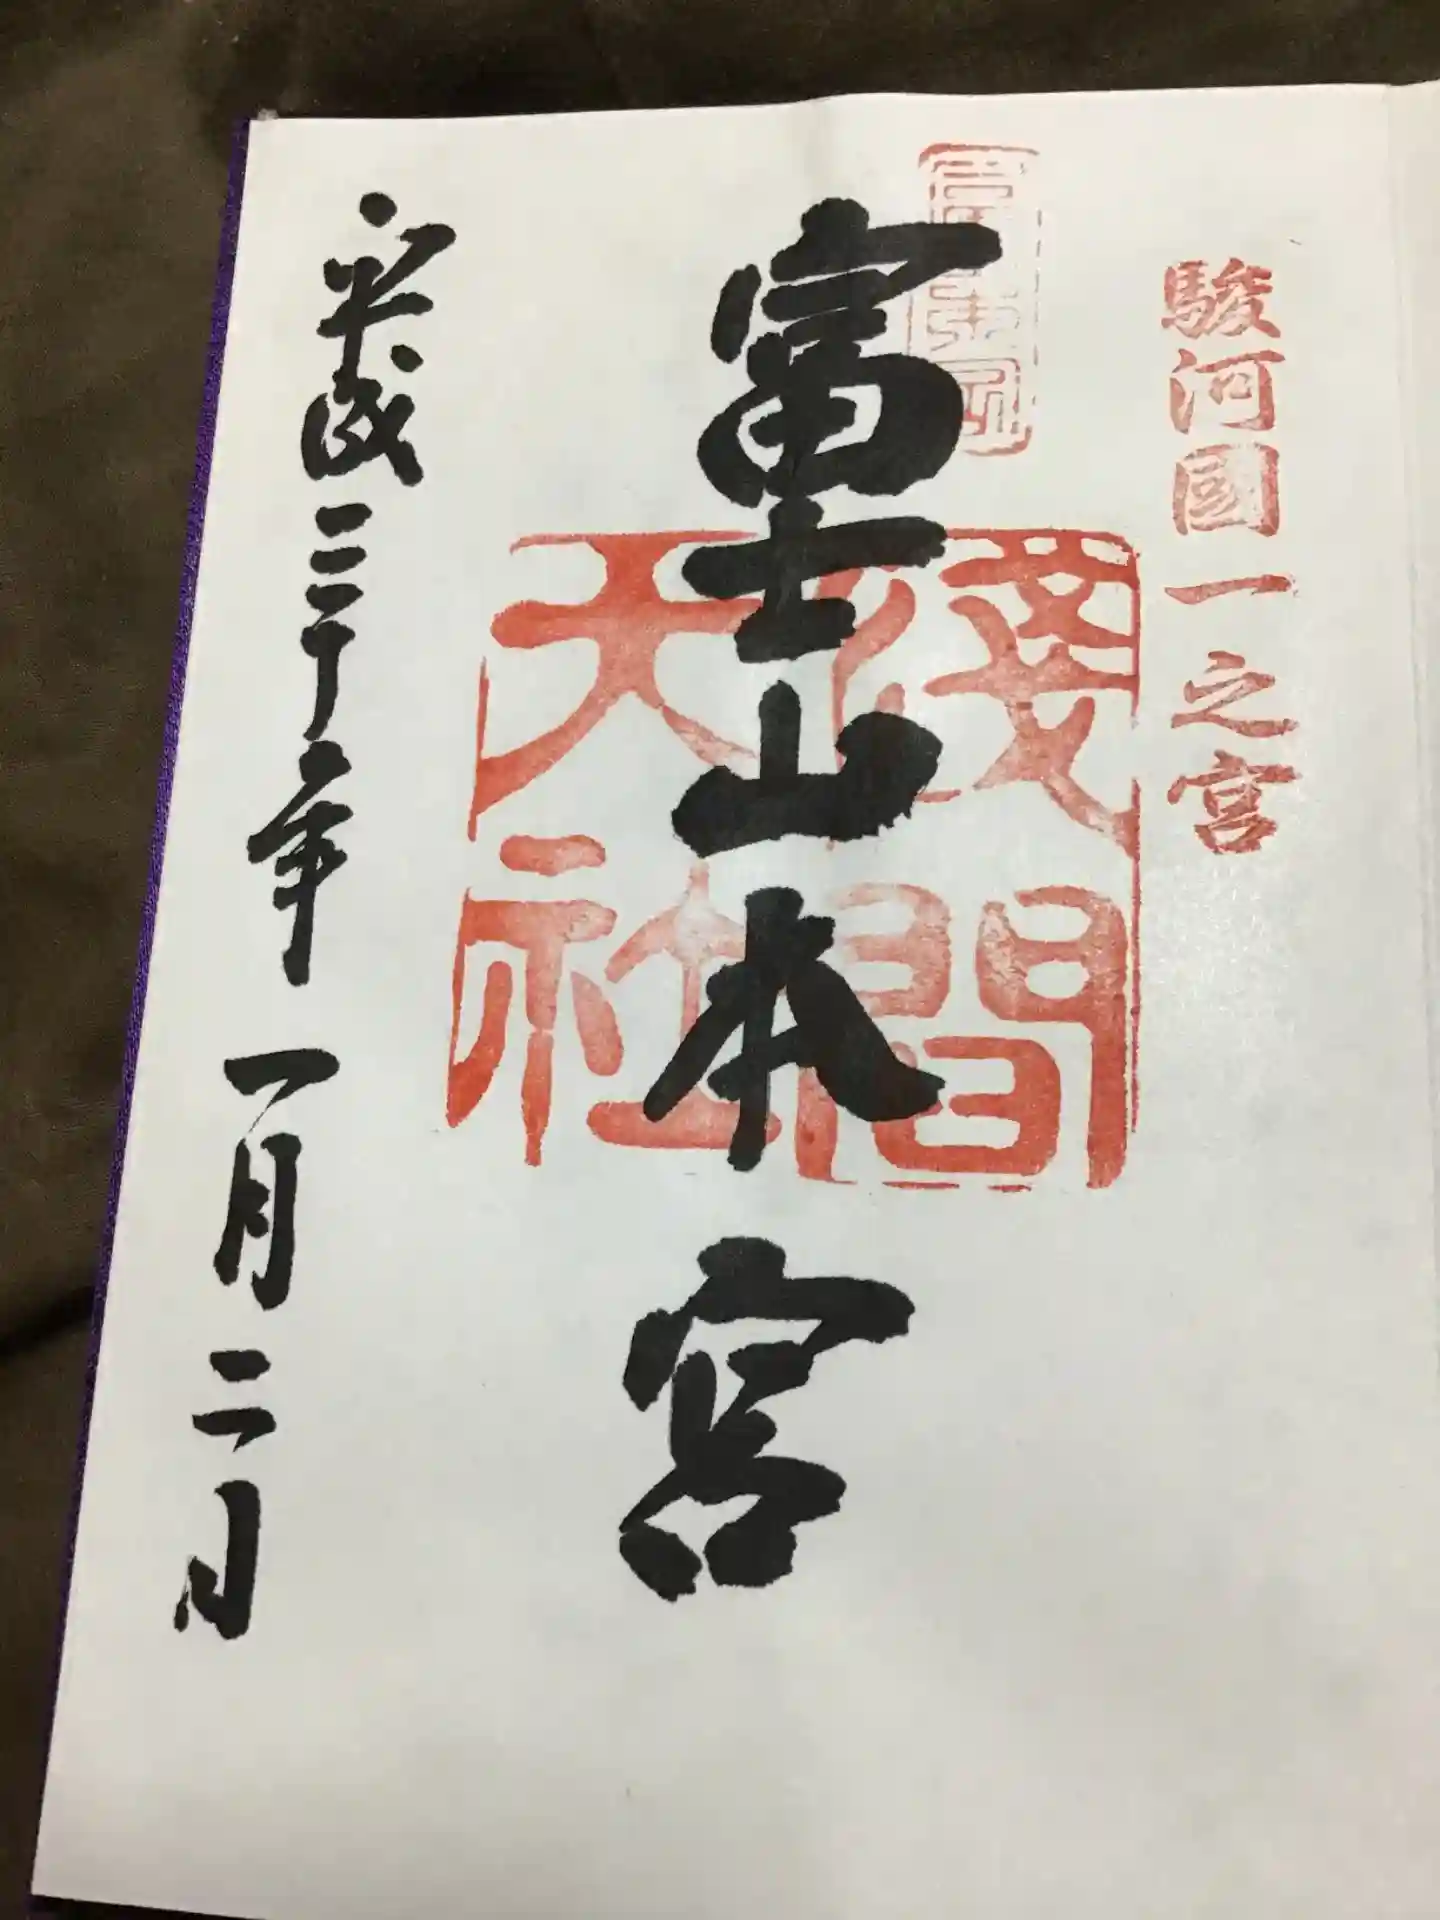 駿河國一之宮
富士山本宮
淺間
大社
平成三十年一月二日